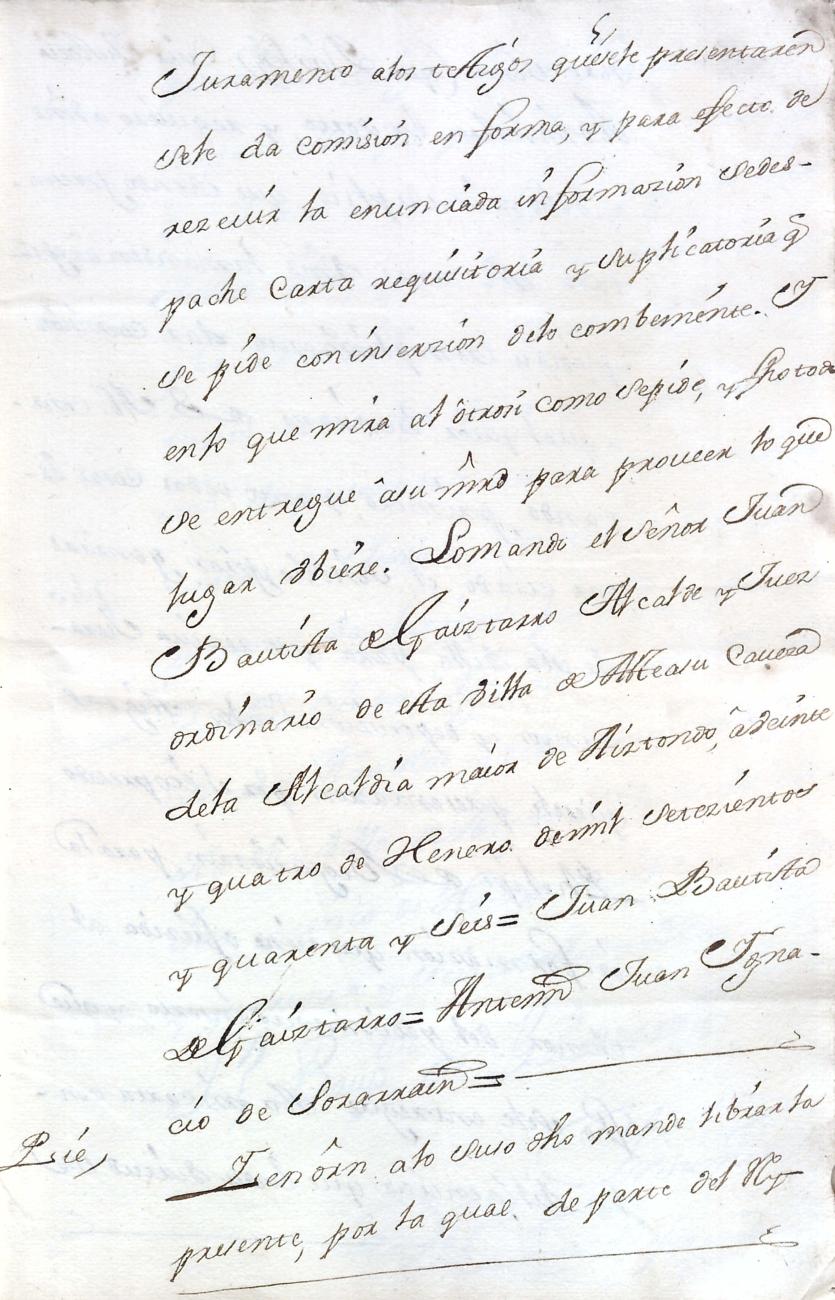 Juramento alos testigos q̃ sele presentaren
sele da comision en forma, y para efecto de
rezeuir la enunciada informazion sedes-
pache Carta requisitoria y suplicatoria q̃
se pide coninserzion delo combeniente. Y
enlo que mira al otrosi como sepide, y fho todo
se entregue âsu mrd para proueer lo que
lugar vbiere. Lomando el señor Juan
Bautista de Gaiztarro Alcalde y Juez
ordinario de esta villa de Asteasu Cauera
dela Alcaldia maior de Aiztondo, â veinte
y quatro de Henero demil setezientos
y quarenta y seis= Juan Bautista
de Gaiztarro= Antemi Juan Igna-
cio de Sorarrain=
Pie,
En orñ alo suso dho mande librar la
presente, por la qual, de parte del Rey